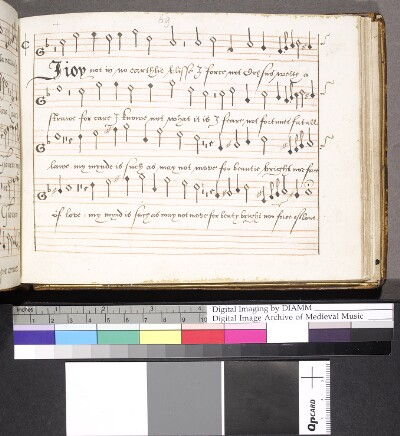 69
I ioy not in no earthlie blisse I force not Cresus welth a
strawe for care I knowe not what it is I feare not fortunes fatall
lawe my mynde is such as may not move for beautie bright nor force
of love my mynd is such as may not move for beuty bright nor force of love
inches 1 2 3 4
1 2 3 4 5 6 7 8 9 10
Digital Imaging by DIAMM
Digital Image Archive of Medieval Music
QPCARD